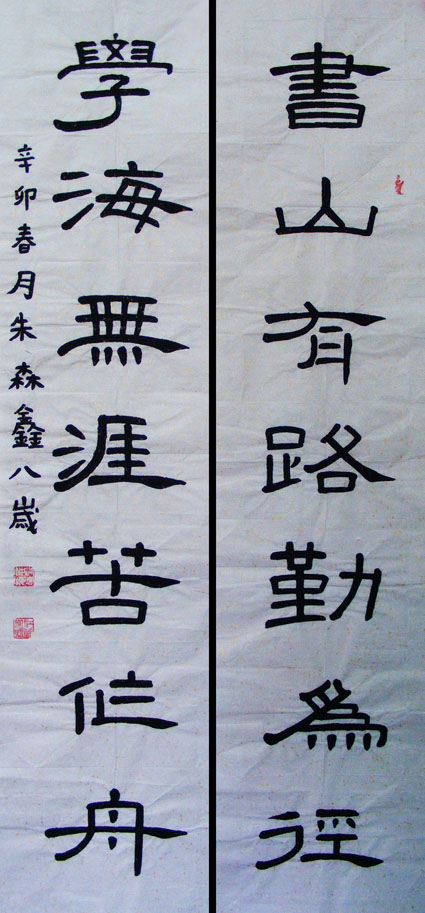 書山有路勤為徑
學海無涯苦作舟
辛卯春月朱森鑫八歲